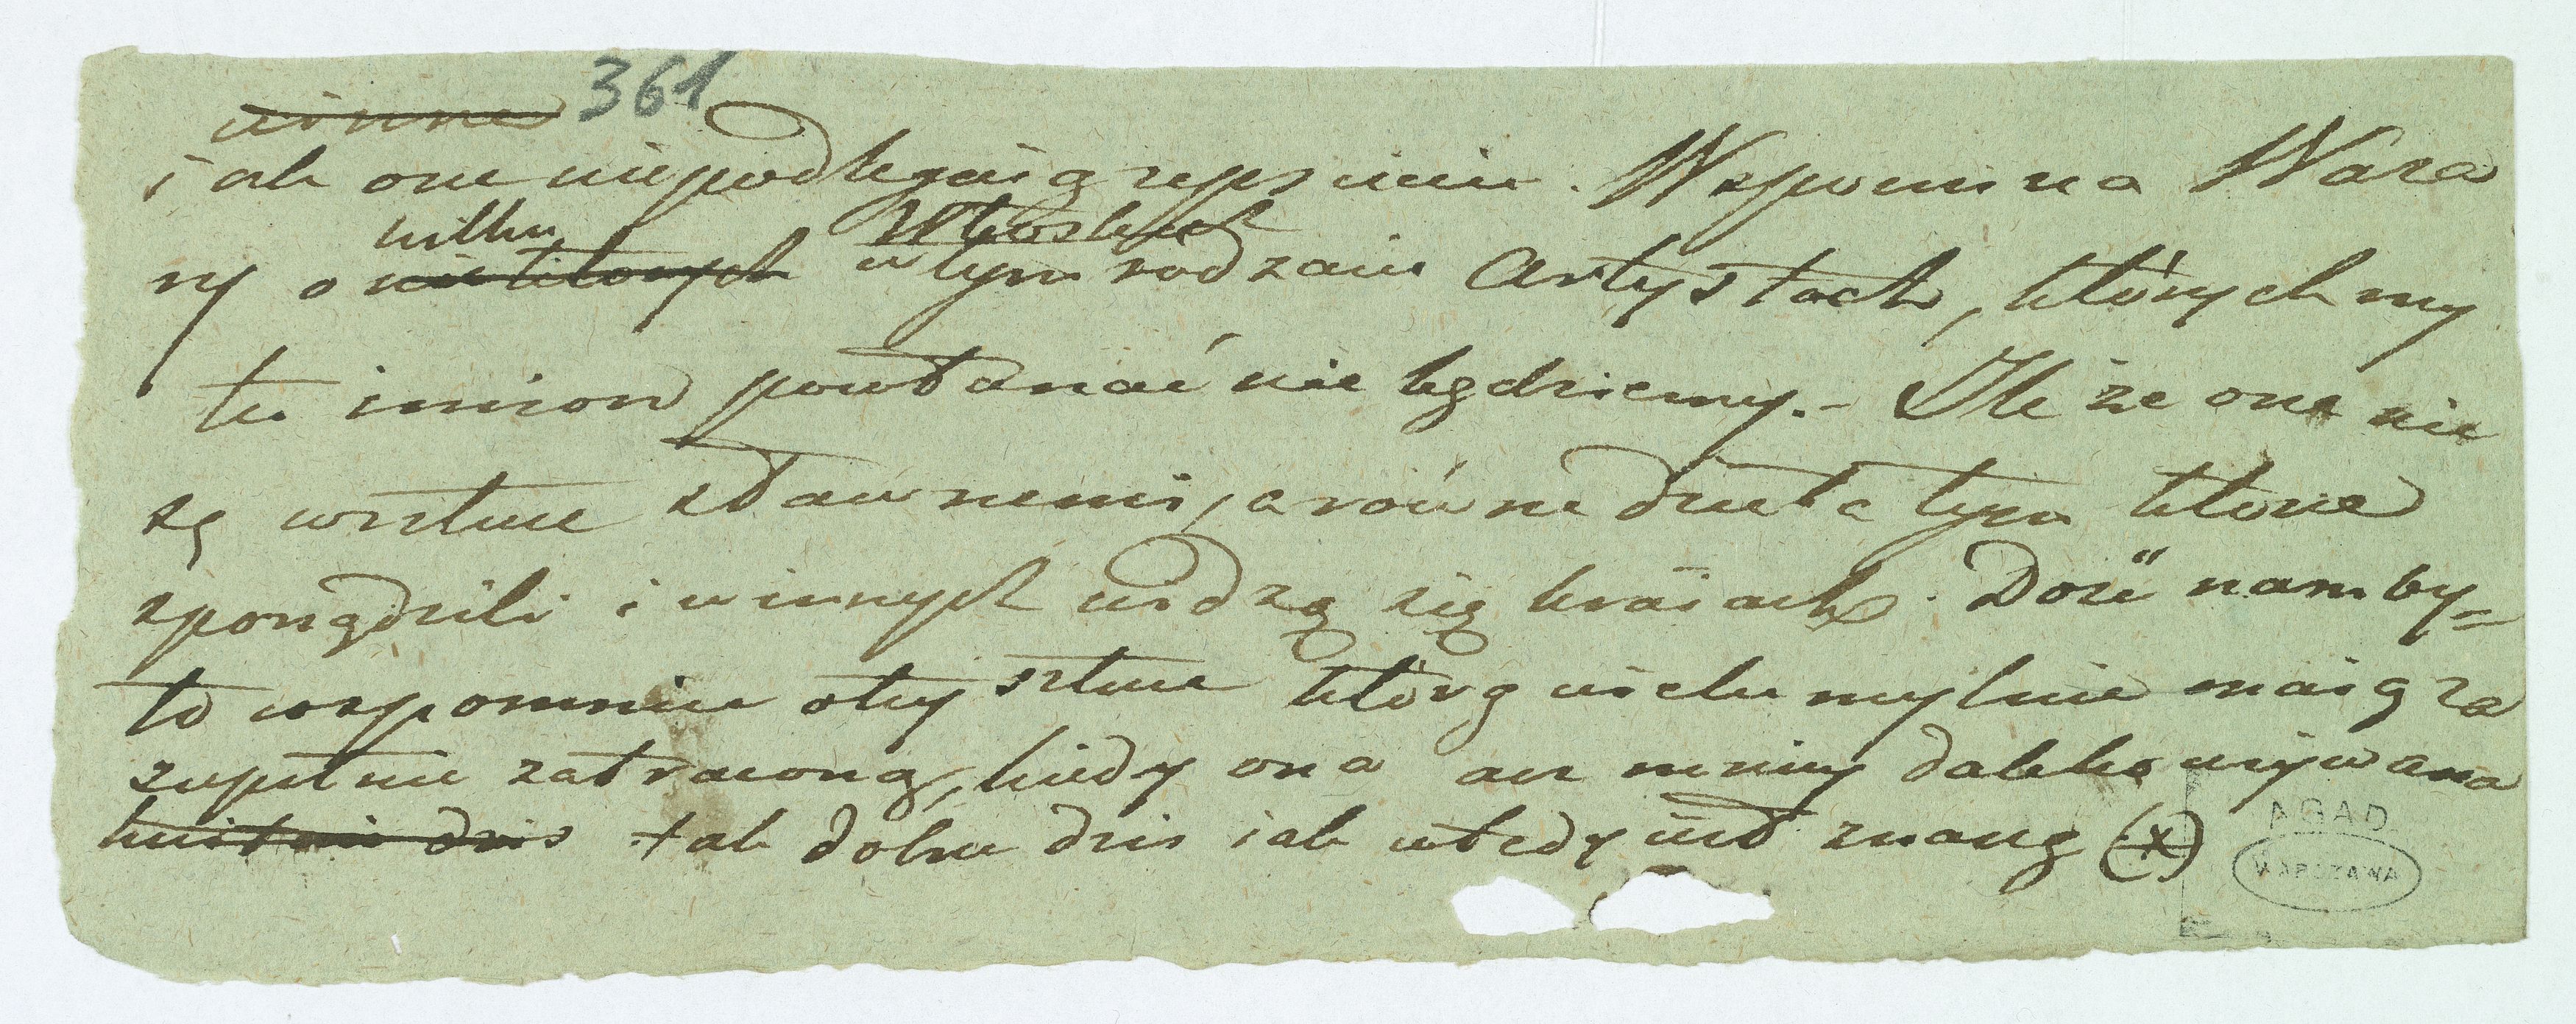 361
winne
iak one niepodlegaią zepsuciu. Wspomina Waza
kilku Włoskich
ry o niektórych w tym rodzaiu Artystach, których my
tu imion powtarzać nie będziemy.- Ile że one nie
są w sztuce sławnemi, a równe dzieła tym które
sporządzili i w innych widzą się kraiach. Dosić nam by=
ło wspomnieć o tey sztuce którą wielu mylnie maią za
zupełnie zatraconą, kiedy ona ani mniey daleko używana
kwitnie dziś tak dobrze dziś iak wtedy iest znaną (x)
AGAD
WARSZAWA